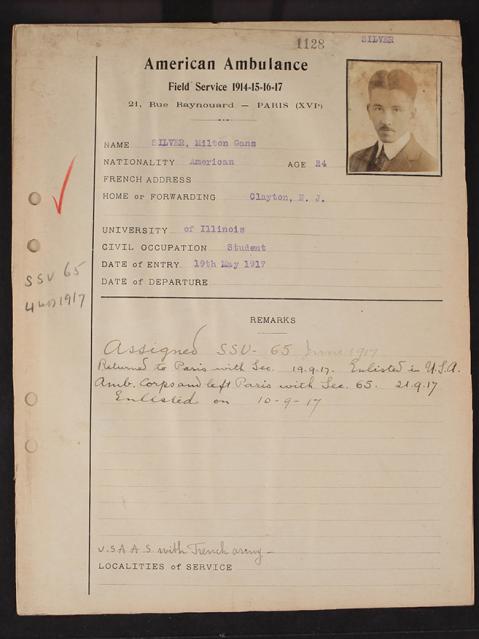 1128 SILVER
American Ambulance
Field Service 1914-15-16-17
21, Rue Raynouard — PARIS (XVIe)
NAME SILVER, Milton Gans
NATIONALITY American AGE 24
FRENCH ADDRESS
HOME or FORWARDING Clayton, N. J.
UNIVERSITY of Illinois
CIVIL OCCUPATION Student
DATE of ENTRY 19th May 1917
DATE of DEPARTURE
SSU 65
1917
REMARKS
Assigned SSU- 65 June 1917
Returned to Paris with Sec. 19.9.17. Enlisted in U.S.A.
Amb. Corps and left Paris with Sec. 65. 21.9.17
Enlisted on 10-9-17
U.S.A.A.S. with French army —
LOCALITIES of SERVICE